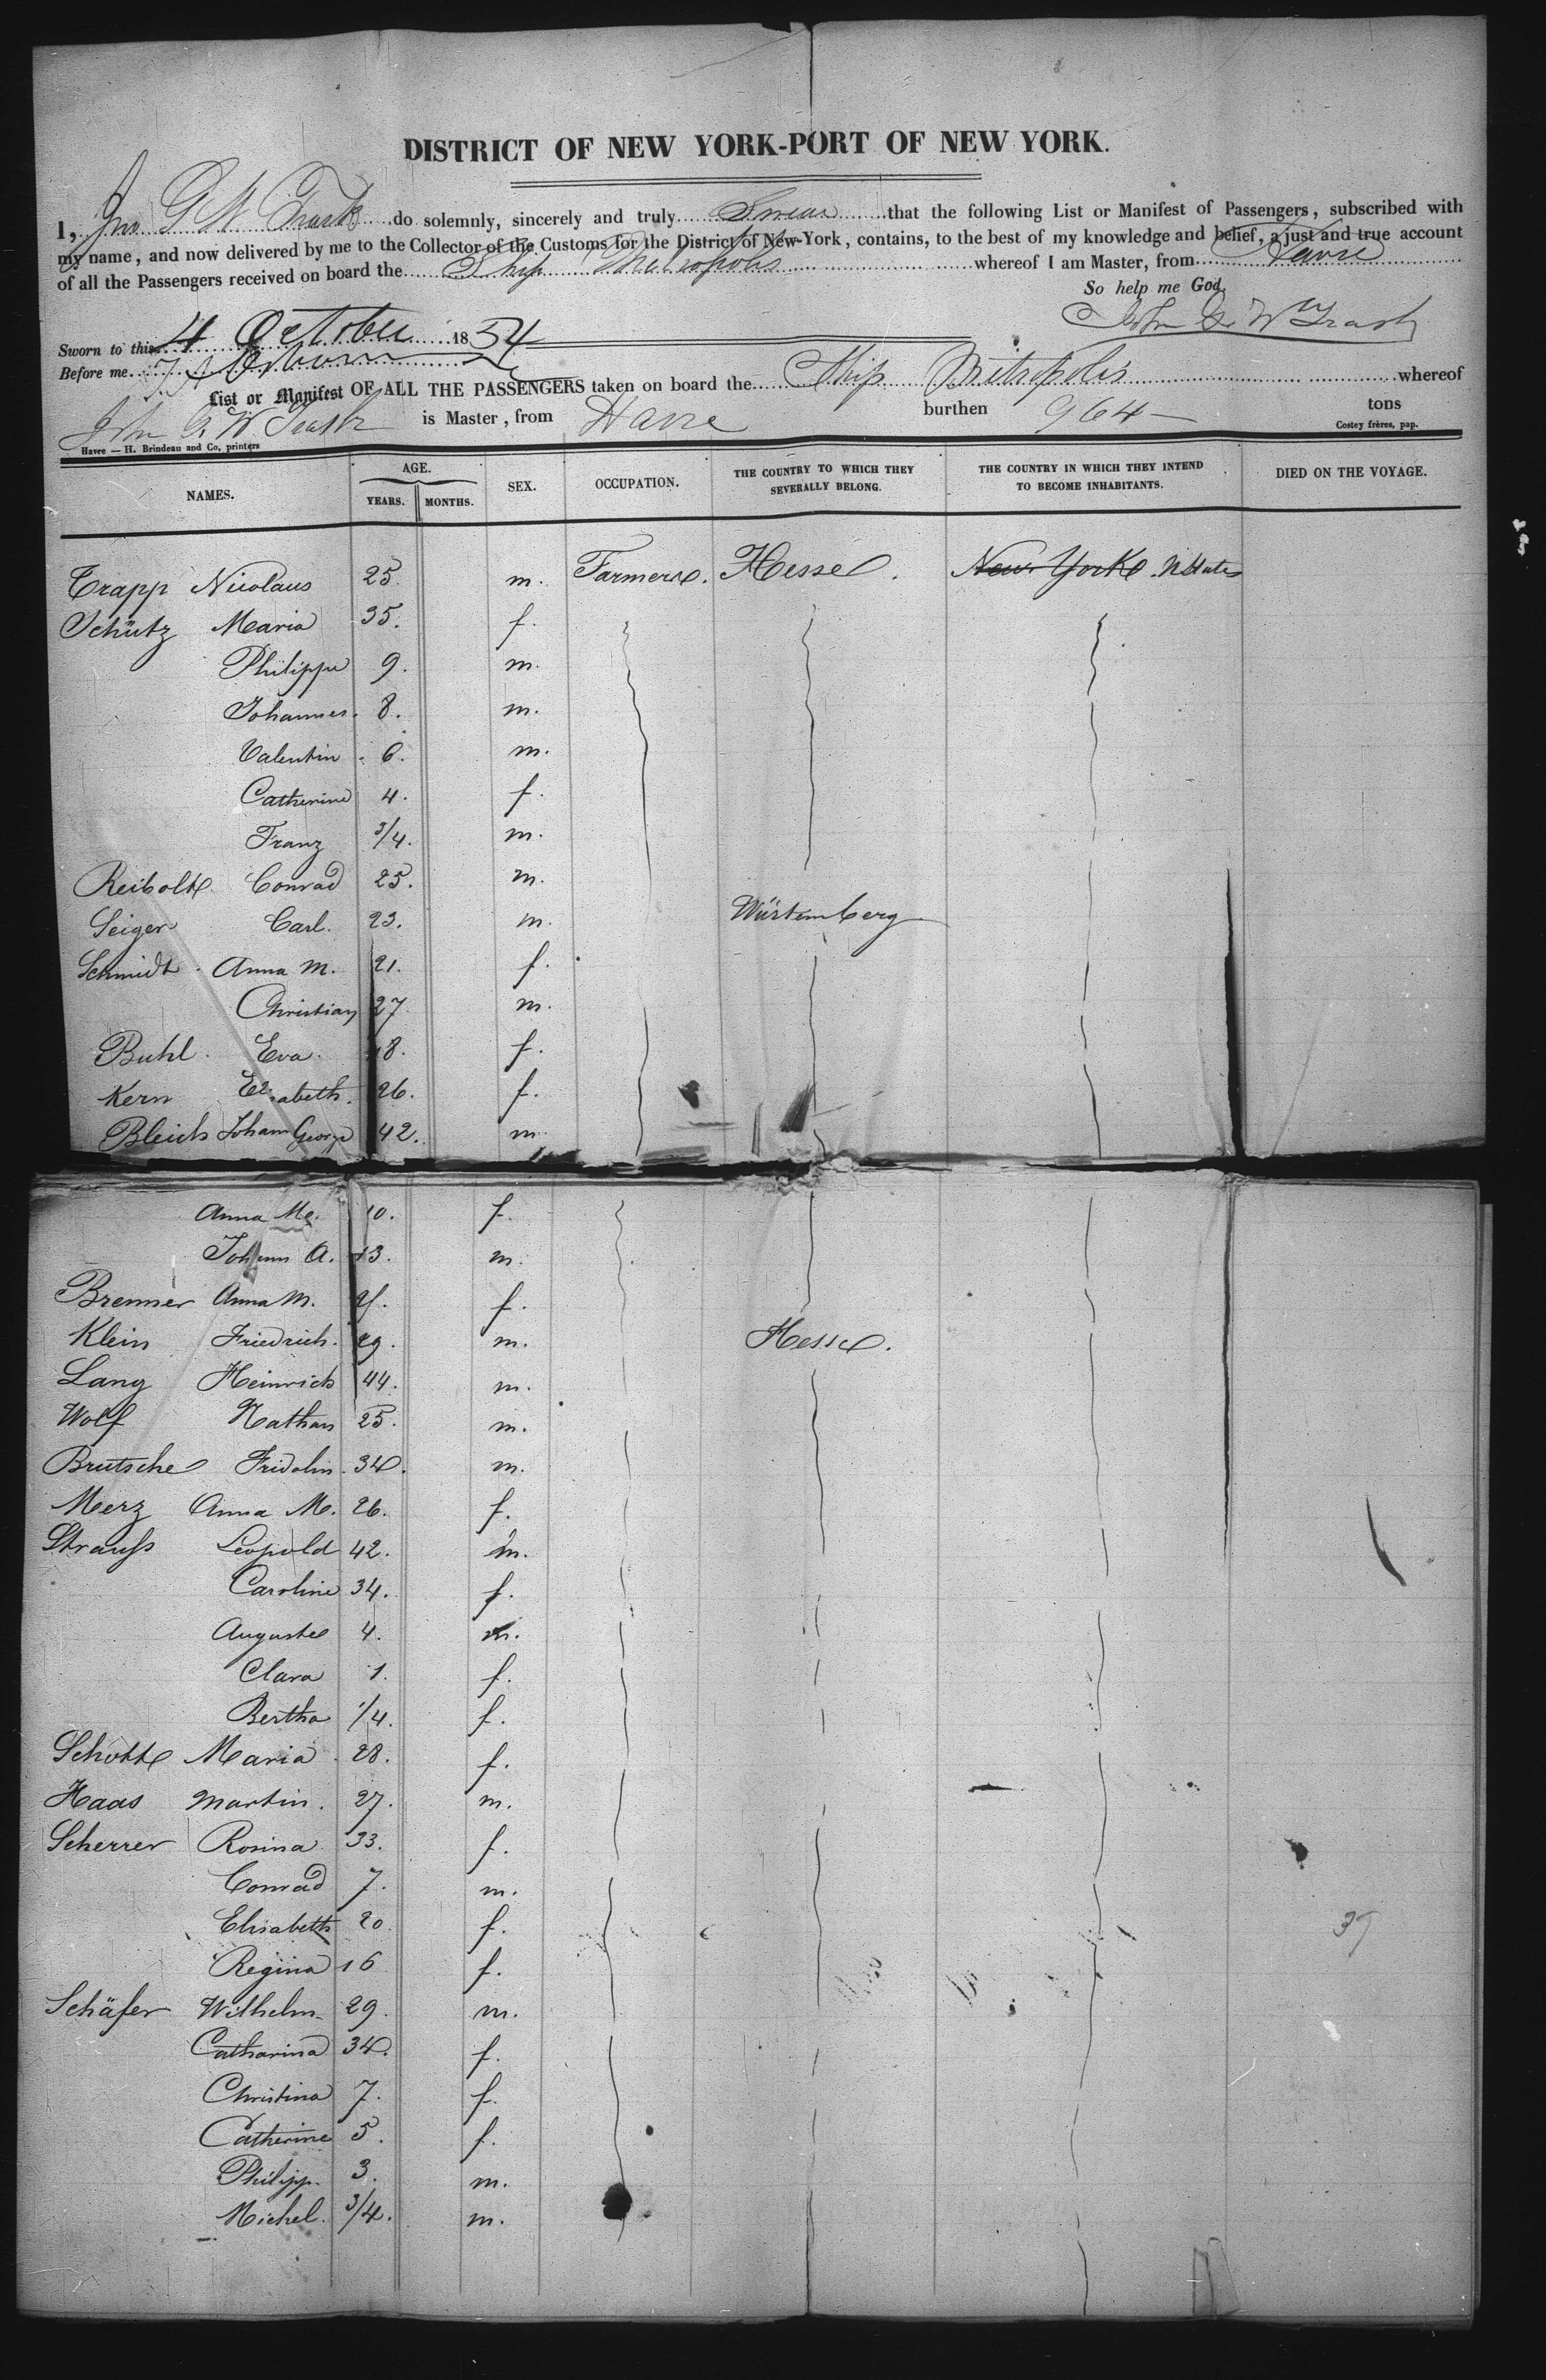 DISTRICT OF NEW YORK-PORT OF NEW YORK.
I, Jno G W Trask do solemnly, sincerely and truly Swear that the following List or Manifest of Passengers, subscribed with
my name, and now delivered by me to the Collector of the Customs for the District of New-York, contains, to the best of my knowledge and belief, a just and true account
of all the Passengers received on board the Ship Metropolis whereof I am Master, from Havre
So help me God.
John G. W Trask
Sworn to this 4 October 1854
Before me Osborn
List or Manifest OF ALL THE PASSENGERS taken on board the Ship Metropolis whereof
John G. W Trask is Master, from Havre burthen 964 tons
Havre — H. Brindeau and Co, printers Costey frères, pap.
NAMES. AGE. YEARS. MONTHS. SEX. OCCUPATION. THE COUNTRY TO WHICH THEY SEVERALLY BELONG. THE COUNTRY IN WHICH THEY INTEND TO BECOME INHABITANTS. DIED ON THE VOYAGE.
Trapp Nicolaus 25. m. Farmers. Hesse. New York UStates
Schütz Maria 35. f.
Philippe 9. m.
Johannes. 8. m.
Valentin. 6. m.
Catherine 4. f.
Franz 3/4. m.
Reibolt Conrad 25. m.
Seiger Carl. 23. m. Würtemberg
Schmidt Anna M. 21. f.
Christian 27. m.
Buhl Eva 48. f.
Kern Elisabeth. 26. f.
Bleich Johann George 42. m.
Anna M. 10. f.
Johann A. 13. m.
Brenner Anna M. 21. f.
Klein Friedrich. 29. m. Hesse.
Lang Heinrich 44. m.
Wolf Nathan 25. m.
Brutsche Fridolin. 30. m.
Merz Anna M. 26. f.
Strauss Leopold 42. m.
Caroline 34. f.
Auguste 4. m.
Clara 1. f.
Bertha 1/4. f.
Schott Maria 28. f.
Haas Martin. 27. m.
Scherrer Rosina 33. f.
Conrad 7. m.
Elisabeth 20. f.
Regina 16 f.
Schäfer Wilhelm 29. m.
Catharina 30. f.
Christina 7. f.
Catherine 5. f.
Philipp. 3. m.
Michel. 3/4. m.